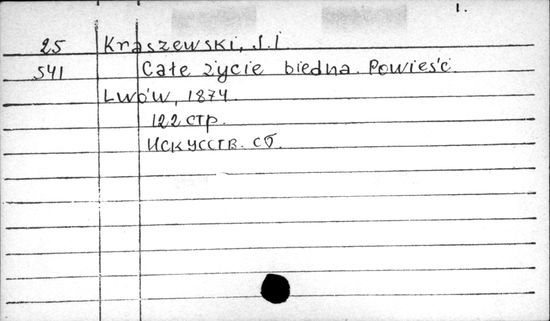 1.
25 Kraszewski, J. I
541 Całe życie biedna. Powieść.
Lwów, 1874.
122 стр.
Искусств. сб.